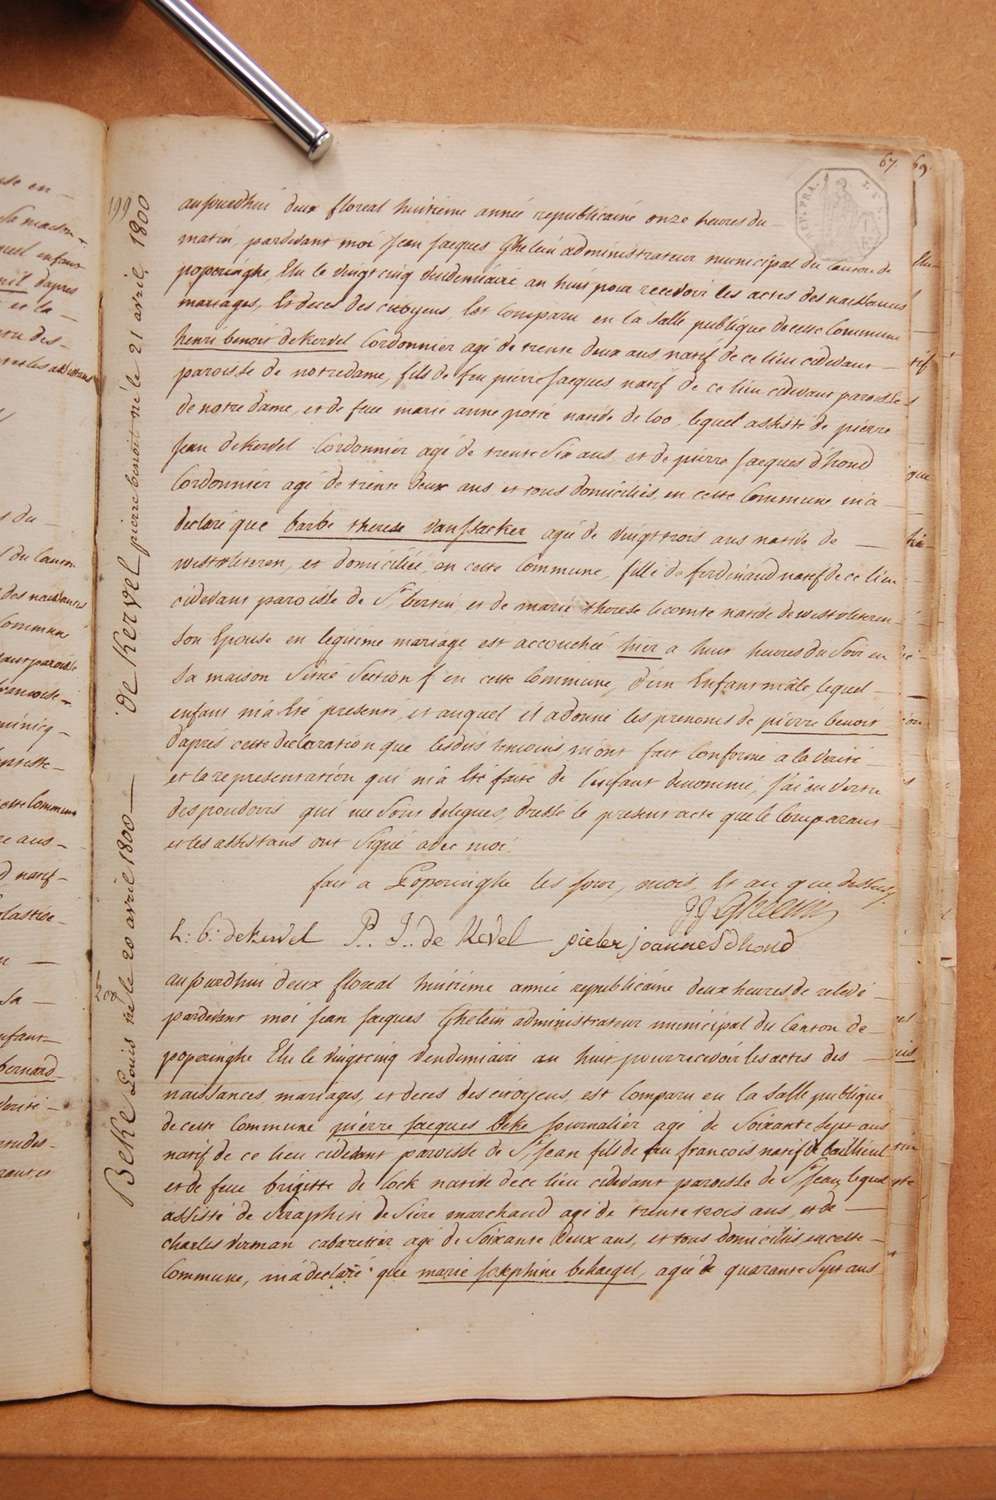 67 69
199
de Kervel pierre benoit né le 21 avril 1800
aujourdhui deux floreal huitieme année republicaine onze heures du
matin, pardevant moi Jean Jacques Ghelein administrateur municipal du Canton de
poperinghe, Elu le vingtcinq vendemiaire an huit pour recevoir les actes des naissances
mariages, Et deces des citoyens, Est Comparu en la salle publique de cette Commune
henri benoit dekervel Cordonnier agé de trente deux ans natif de ce lieu cidevant
paroisse de notredame, fils de feu pierre Jacques natif de ce lieu cidevant paroisse
de notre dame, et de feue marie anne potié native de loo, lequel assisté de pierre
Jean dekervel Cordonnier agé de trente Six ans et de pierre Jacques dhond
Cordonnier agé de trente deux ans, et tous domiciliés en cette Commune m'a
declaré que barbe therese vanstacker agée de vingt trois ans native de —
westvleteren, et domiciliée en cette Commune, fille de ferdinand natif de ce lieu
cidevant paroisse de St bertin et de marie therese lecomte native de westvleteren
son Epouse en legitime mariage est accouchée hier a huit heures du Soir en
Sa maison Située Section f en cette Commune, d'un Enfant mâle lequel —
enfant m'a Eté presenté, et auquel il a donné les prenoms de pierre benoit
d'aprés cette declaration que lesdits temoins m'ont fait Conforme a la verité —
et la representation qui m'a Eté faite de l'enfant denommé, J'ai en vertu
des pouvoirs qui me Sont delegués, dressé le present acte que le Comparant
et les assistans ont Signé avec moi.
fait a Poperinghe les Jour, mois, Et an que dessus.
JJ Ghelein
h: b: dekervel P.. J.. de Kevel pieter joannes Dhond
200
Beke Louis né le 20 avril 1800 —
aujourdhui deux floreal huitieme année republicaine deux heures de relevé —
pardevant moi Jean Jacques Ghelein administrateur municipal du Canton de
poperinghe Elu le vingtcinq vendemiaire an huit pour recevoir les actes des —
naissances mariages, et deces des citoyens, est Comparu en la salle publique
de cette Commune pierre Jacques Beke Journalier agé de Soixante Sept ans
natif de ce lieu cidevant paroisse de St Jean fils de feu francois natif de bailleul
et de feue brigitte de Cock native de ce lieu cidevant paroisse de St Jean lequel
assisté de Seraphin de Sire marchand agé de trente trois ans, et de —
charles verman cabaretier agé de Soixante deux ans, et tous domiciliés en cette
Commune, m'a declaré que marie Josephine behaegel, agée de quarante Sept ans